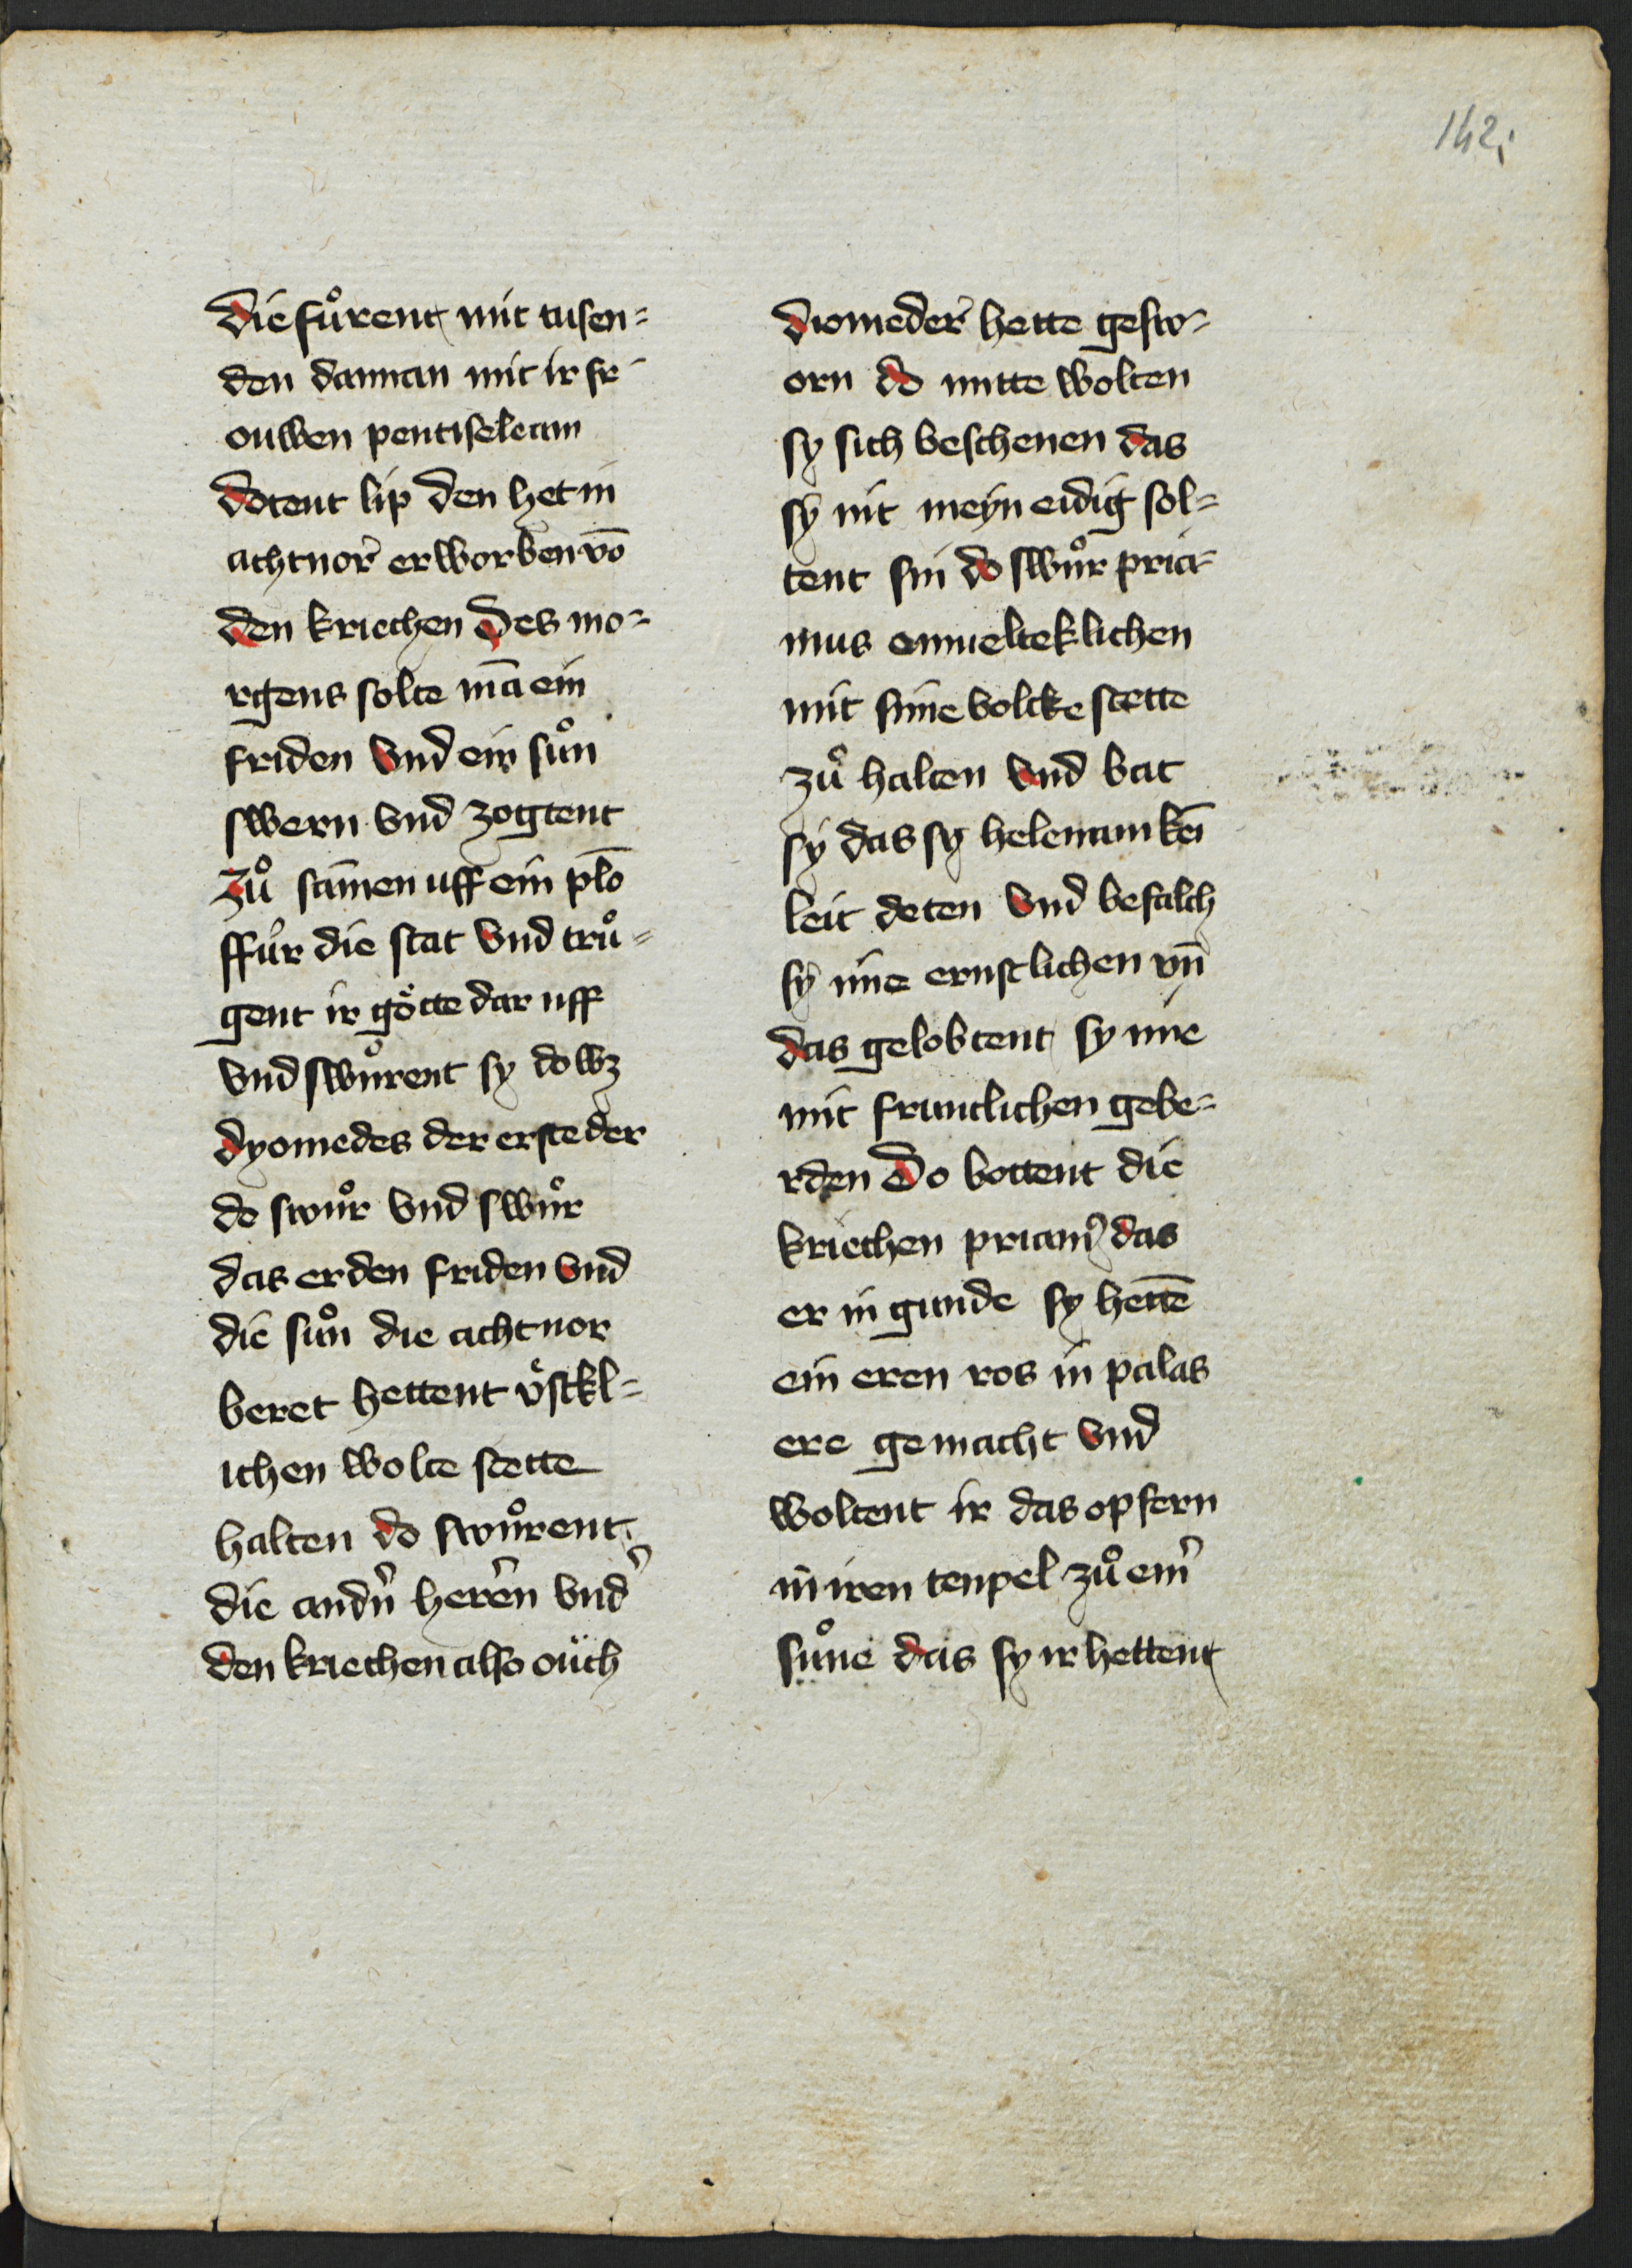 142.
die fuͦrent mit tusen=
den dannan mit ir fr=
ouwen pentiseleam
dotent lip den het in
achtnor erworben võ
den kriechen Des mo=
rgens solte mā ein
friden vnd ein suͦn
swern vnd zogtent
zuͦ samen uff ein plō
ffür die stat vnd truͦ=
gent ir götte dar uff
vnd swuͦrent sy do wz
dyomedes der erste der
do swuͦr vnd swuͦr
das er den friden vnd
die suͦn die achtnor
beret hettent vöstkl=
ichen wolte stette
halten do swuͦrent
die andn̄ heren vnd
den kriechen also ouch
diomeder hette gesw=
orn do mitte wolten
sy sich beschenen das
sy nit meyn eidig sol=
tent sin do swuͦr pria=
mus einuelteklichen
mit sime volcke stette
zuͦ halten vnd bat
sy das sy helenam kei
leit deten vnd befalch
sy ime ernstlichen vn̄
das gelobtent sy ime
mit fruntlichen gebe=
rden Do bottent die
kriechen priam9 das
er in gunde sy hettē
ein eren ros in palas
ere gemacht vnd
woltent ir das opfern
in iren tenpel zuͦ eim
suͦne das sy ir hettent